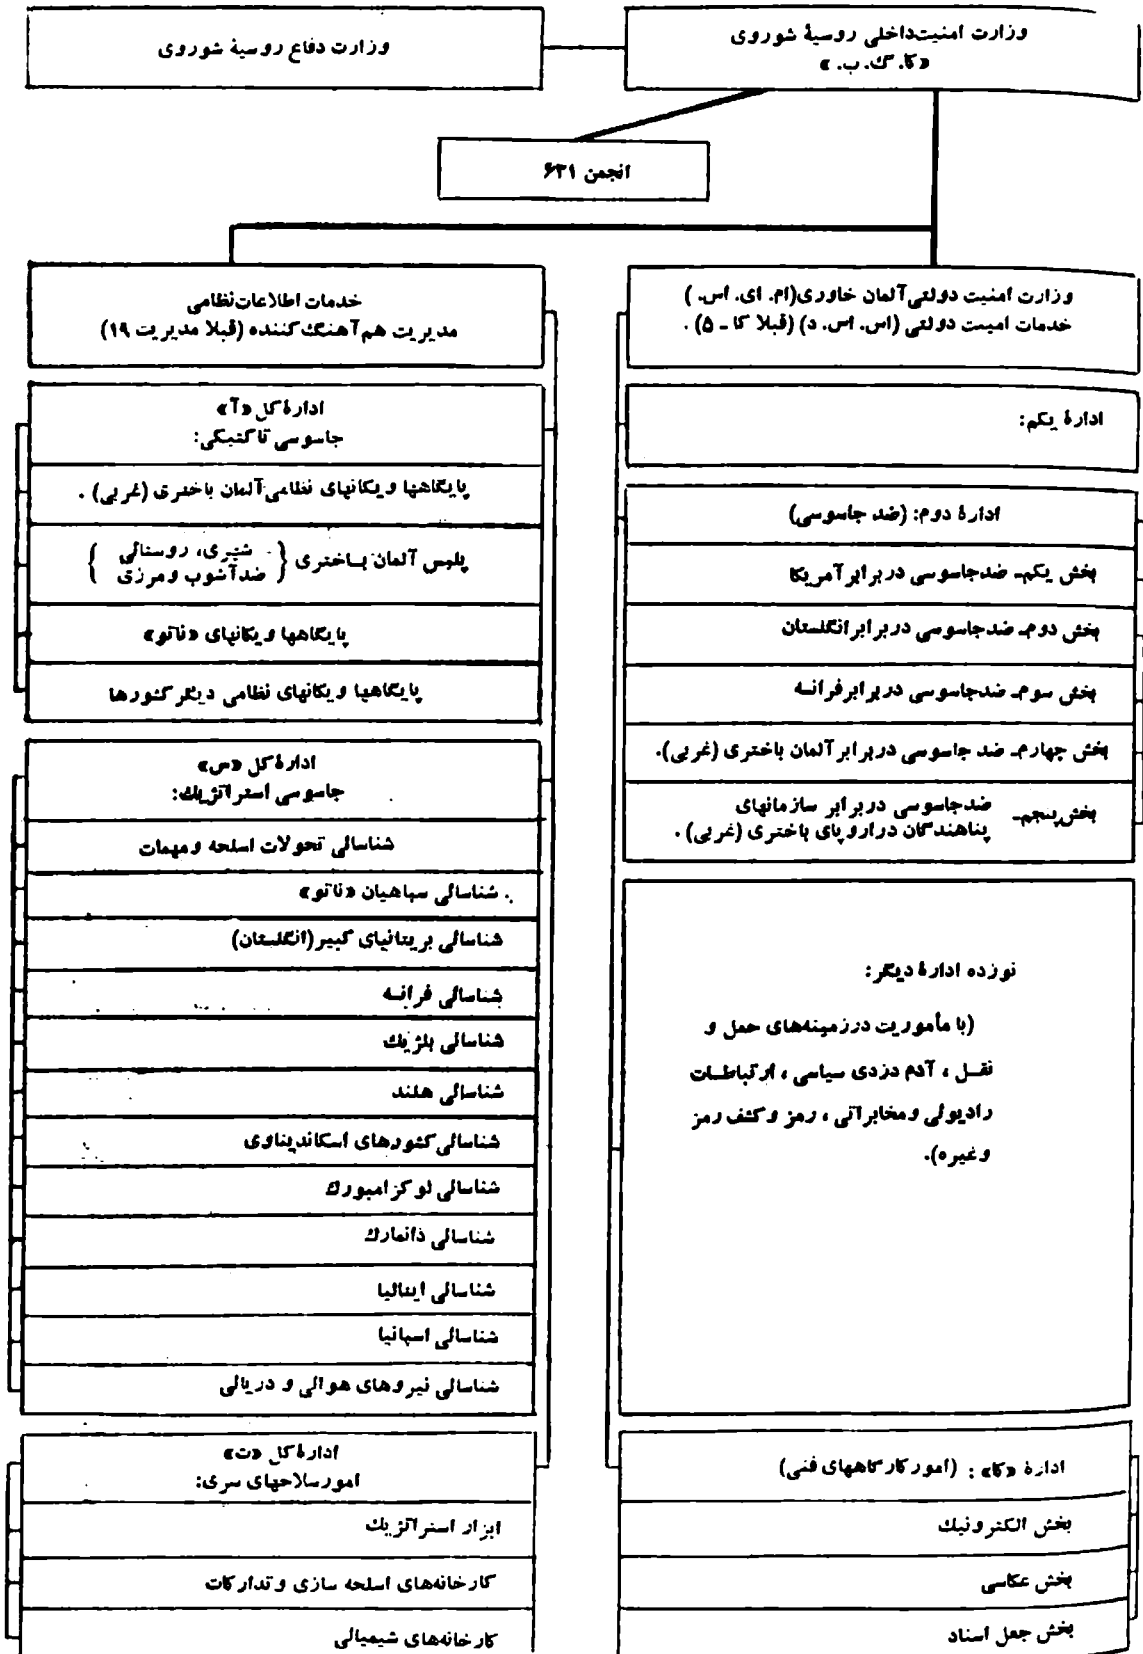 وزارت امنیت‌داخلی روسیهٔ شوروی
«کا. گ. ب. »
وزارت دفاع روسیهٔ شوروی
انجمن ۶۳۱
وزارت امنیت دولتی آلمان خاوری(ام. ای. اس. )
خدمات امنیت دولتی (اس. اس. د) (قبلا کا ـ ۵) .
ادارهٔ یکم:
ادارهٔ دوم: (ضد جاسوسی)
بخش یکم‌ـ ضدجاسوسی در برابر آمریکا
بخش دوم‌ـ ضدجاسوسی در برابر انگلستان
بخش سوم‌ـ ضدجاسوسی در برابر فرانسه
بخش چهارم‌ـ ضد جاسوسی در برابر آلمان باختری (غربی).
بخش پنجم‌ـ ضدجاسوسی در برابر سازمانهای
پناهندگان در اروپای باختری (غربی) .
نوزده ادارهٔ دیگر:
(با مأموریت در زمینه‌های حمل و
نقــل ، آدم دزدی سیاسی ، ارتباطــات
رادیوئی و مخابراتی ، رمز و کشف رمز
و غیره).
ادارهٔ «کا» : (امور کارگاههای فنی)
بخش الکترونیك
بخش عکاسی
بخش جعل اسناد
خدمات اطلاعات‌نظامی
مدیریت هم‌آهنگ‌کننده (قبلا مدیریت ۱۹)
ادارهٔ کل «آ»
جاسوسی تاکتیکی:
پایگاهها و یکانهای نظامی آلمان باختری (غربی) .
پلیس آلمان بــاختری { شهری، روستائی
ضدآشوب و مرزی }
پایگاهها و یکانهای «ناتو»
پایگاهها و یکانهای نظامی دیگر کشورها
ادارهٔ کل «س»
جاسوسی استراتژیك:
شناسائی تحولات اسلحه و مهمات
شناسائی سپاهیان «ناتو»
شناسائی بریتانیای کبیر(انگلستان)
شناسائی فرانسه
شناسائی بلژیك
شناسائی هلند
شناسائی کشورهای اسکاندیناوی
شناسائی لوکزامبورك
شناسائی دانمارك
شناسائی ایتالیا
شناسائی اسپانیا
شناسائی نیروهای هوائی و دریائی
ادارهٔ کل «ت»
امور سلاحهای سری:
ابزار استراتژیك
کارخانه‌های اسلحه سازی و تدارکات
کارخانه‌های شیمیائی